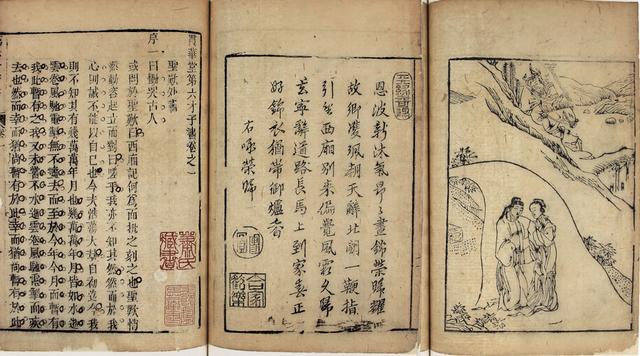 恩波新沐氣昂〻晝錦榮歸耀
故鄉瓊珮朝天辭北闕一鞭指
引望西廂別來偏覺風霜久歸
去寧辭道路長馬上到家春正
好錦衣猶帶御爐香
右咏榮歸
貫華堂第六才子書卷之一
聖歎外書
序一曰慟哭古人
或問於聖歎曰西廂記何為而批之刻之也聖歎悄
然動容起立而對曰嗟乎我亦不知其然然而於我
心則誠不能以自已也今夫浩蕩大劫自初迄今我
則不知其有幾萬萬年月也幾萬萬年月皆如水逝
雲卷風馳電掣無不盡去而至於今年今月而暫有
我此暫有之我又未嘗不水逝雲卷風馳電掣而疾
去也然而幸而猶尚暫有於此幸而猶尚暫有於此
藏書